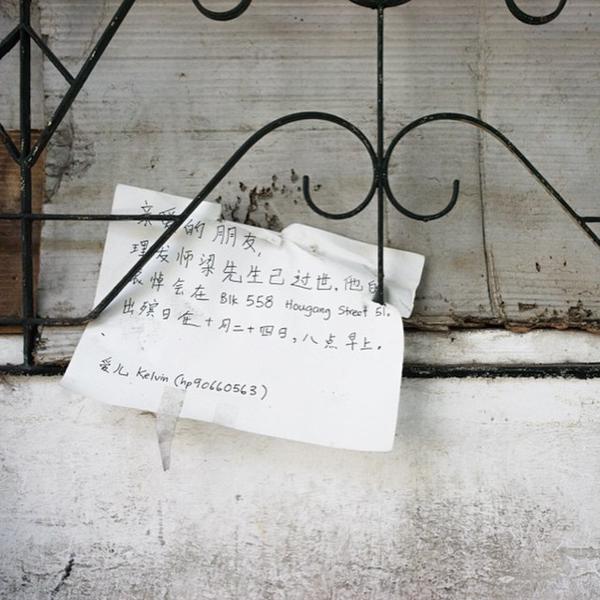 亲爱的朋友,
理发师梁先生已过世.他的
哀悼会在 Blk 558 Hougang Street 51.
出殡日在十月二十四日,八点早上.
爱儿 Kelvin (hp90660563)